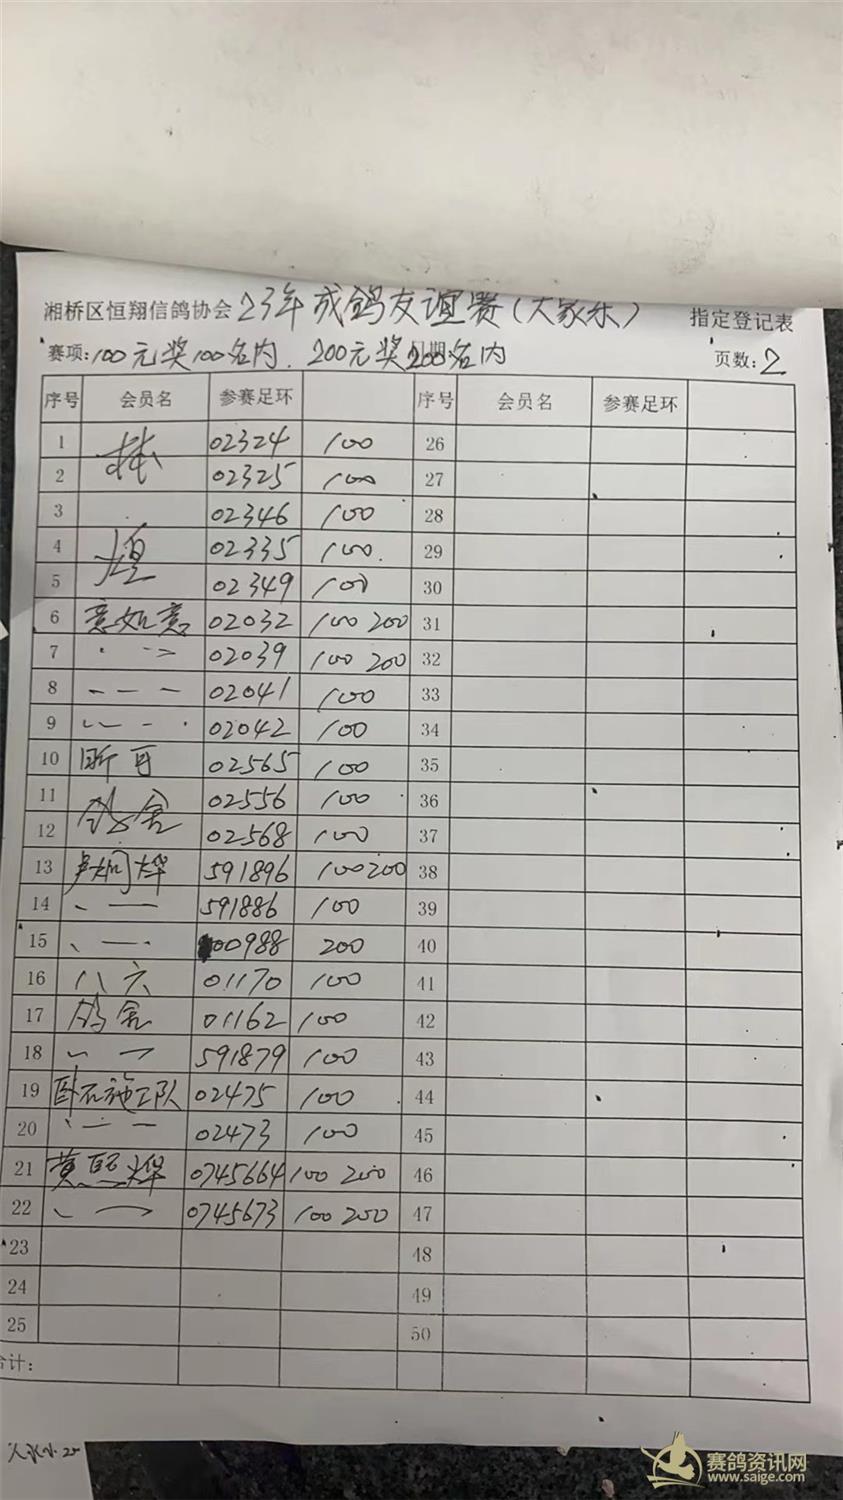 湘桥区恒翔信鸽协会 23年成鸽友谊赛(大家乐) 指定登记表
赛项:100元奖100名内. 200元奖200名内 页数:2
序号 会员名 参赛足环 序号 会员名 参赛足环
1 林 02324 100 26
2 02325 100 27
3 02346 100 28
4 煌 02335 100. 29
5 02349 100 30
6 意如意 02032 100 200 31
7 02039 100 200 32
8 02041 100 33
9 02042 100 34
10 昕可 02565 100 35
11 鸽舍 02556 100 36
12 02568 100 37
13 卢炯烨 591896 100 200 38
14 591886 100 39
15 00988 200 40
16 八六 01170 100 41
17 鸽舍 01162 100 42
18 591879 100 43
19 卧石施工队 02475 100 44
20 02473 100 45
21 黄熙烨 0745664 100 200 46
22 0745673 100 200 47
23 48
24 49
25 50
合计:
赛鸽资讯网
www.saige.com